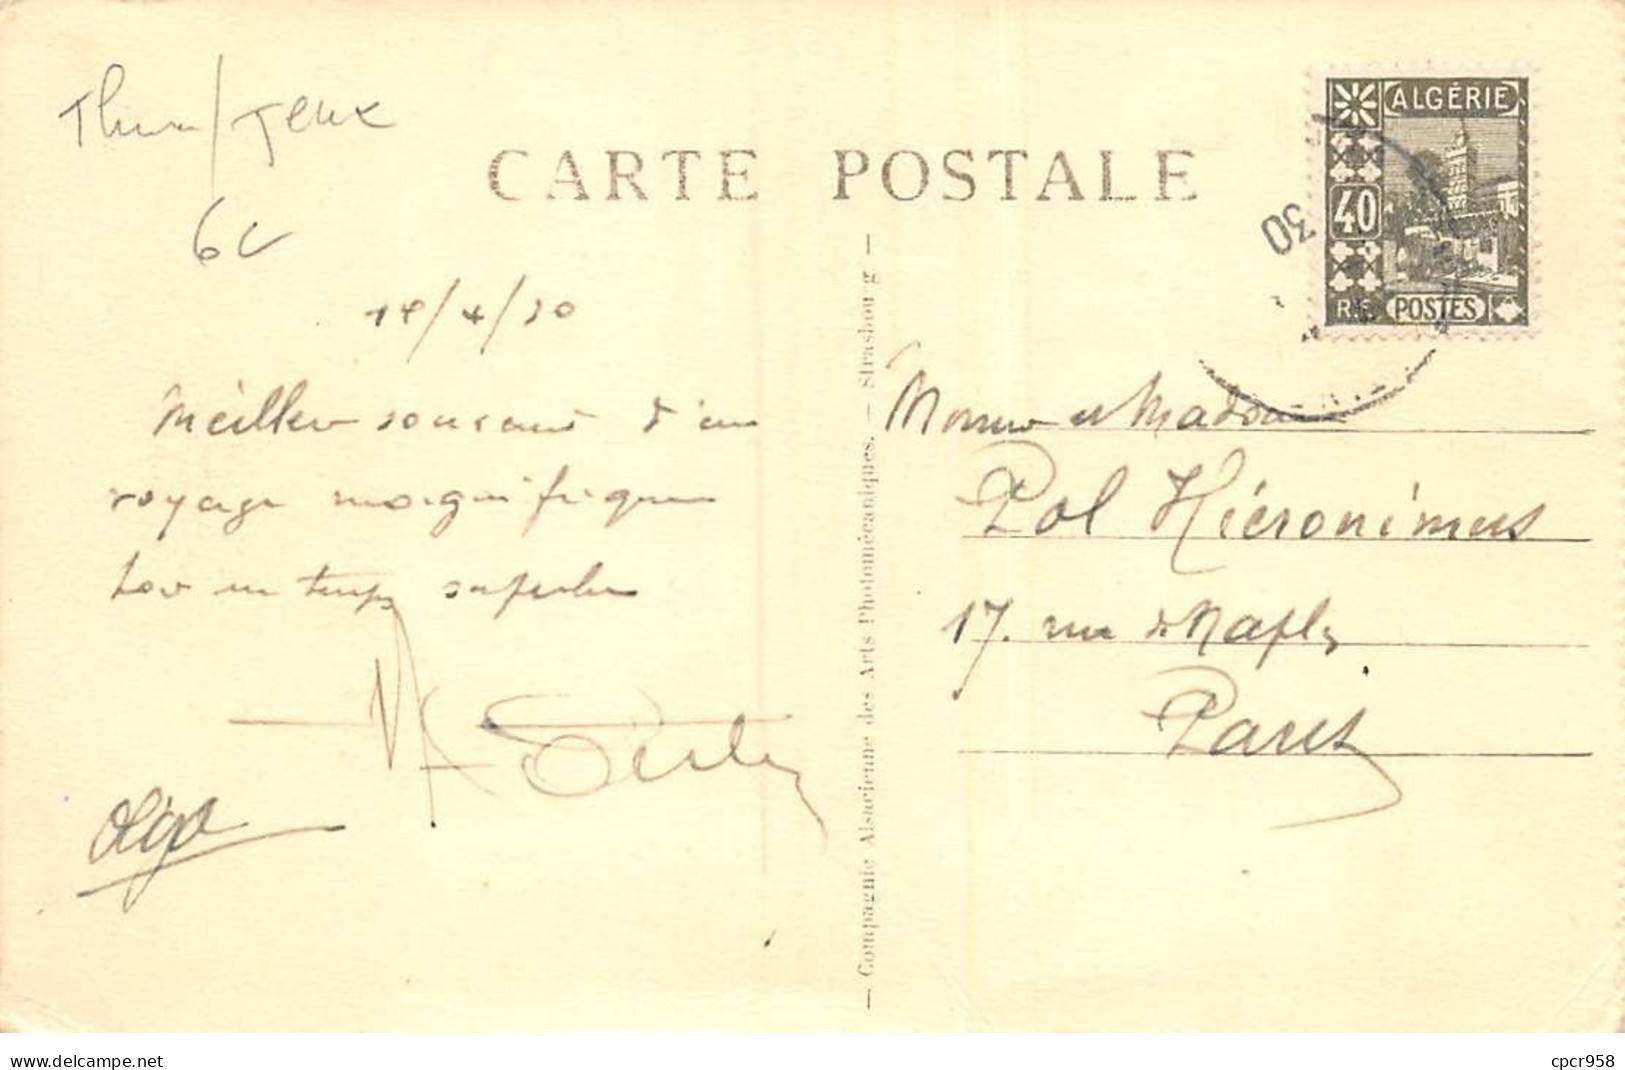 CARTE POSTALE
ALGÉRIE
40
POSTES
30
6c
14/4/30
Meilleur souvenir d'un
voyage magnifique
par un temps superbe
Olga
— Compagnie Alsacienne des Arts Photomécaniques. — Strasbourg —
Monsieur et Madame
Pol Hiéronimus
17. rue de Naples
Paris
www.delcampe.net
cpcr958